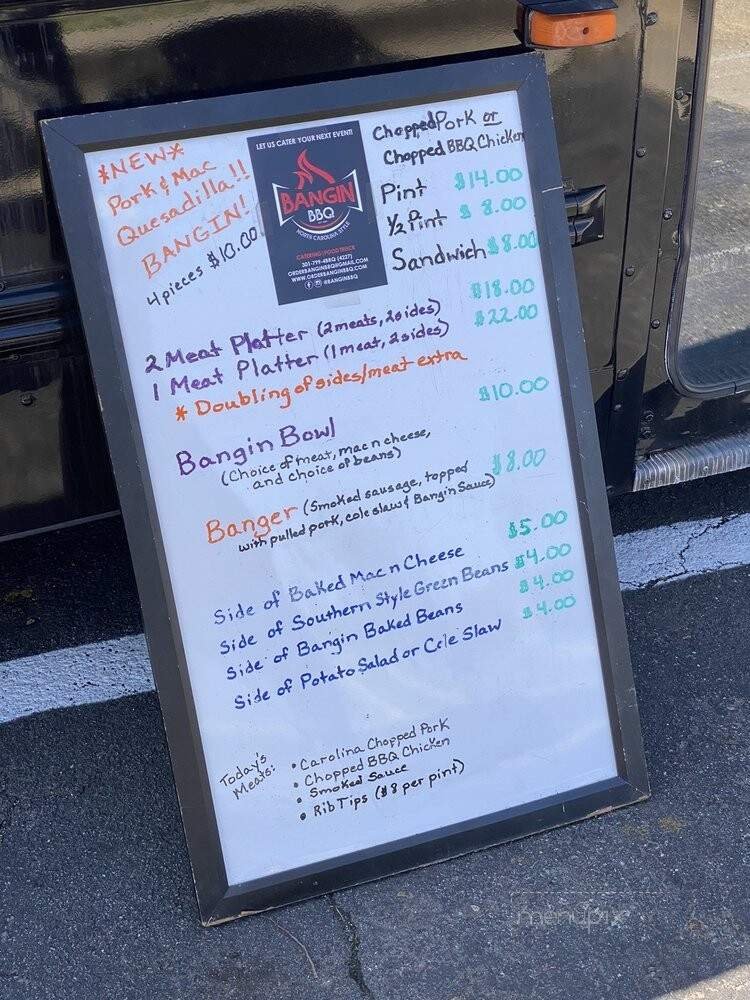 *NEW*
Pork & Mac
Quesadilla!!
BANGIN!
4 pieces $10.00
LET US CATER YOUR NEXT EVENT!
BANGIN
BBQ
NORTH CAROLINA STYLE
CATERING | FOOD TRUCK
301-799-4BBQ (4227)
ORDERBANGINBBQ@GMAIL.COM
WWW.ORDERBANGINBBQ.COM
@BANGINBBQ
Chopped Pork or
Chopped BBQ Chicken
Pint $14.00
1/2 Pint $8.00
Sandwich $8.00
2 Meat Platter (2 meats, 2 sides) $18.00
1 Meat Platter (1 meat, 2 sides) $22.00
* Doubling of sides/meat extra
Bangin Bowl $10.00
(Choice of meat, mac n cheese,
and choice of beans)
Banger (Smoked sausage, topped $8.00
with pulled pork, cole slaw & Bangin Sauce)
Side of Baked Mac n Cheese $5.00
Side of Southern Style Green Beans $4.00
Side of Bangin Baked Beans $4.00
Side of Potato Salad or Cole Slaw $4.00
Today's
Meats:
• Carolina Chopped Pork
• Chopped BBQ Chicken
• Smoked Sauce
• Rib Tips ($8 per pint)
menupix